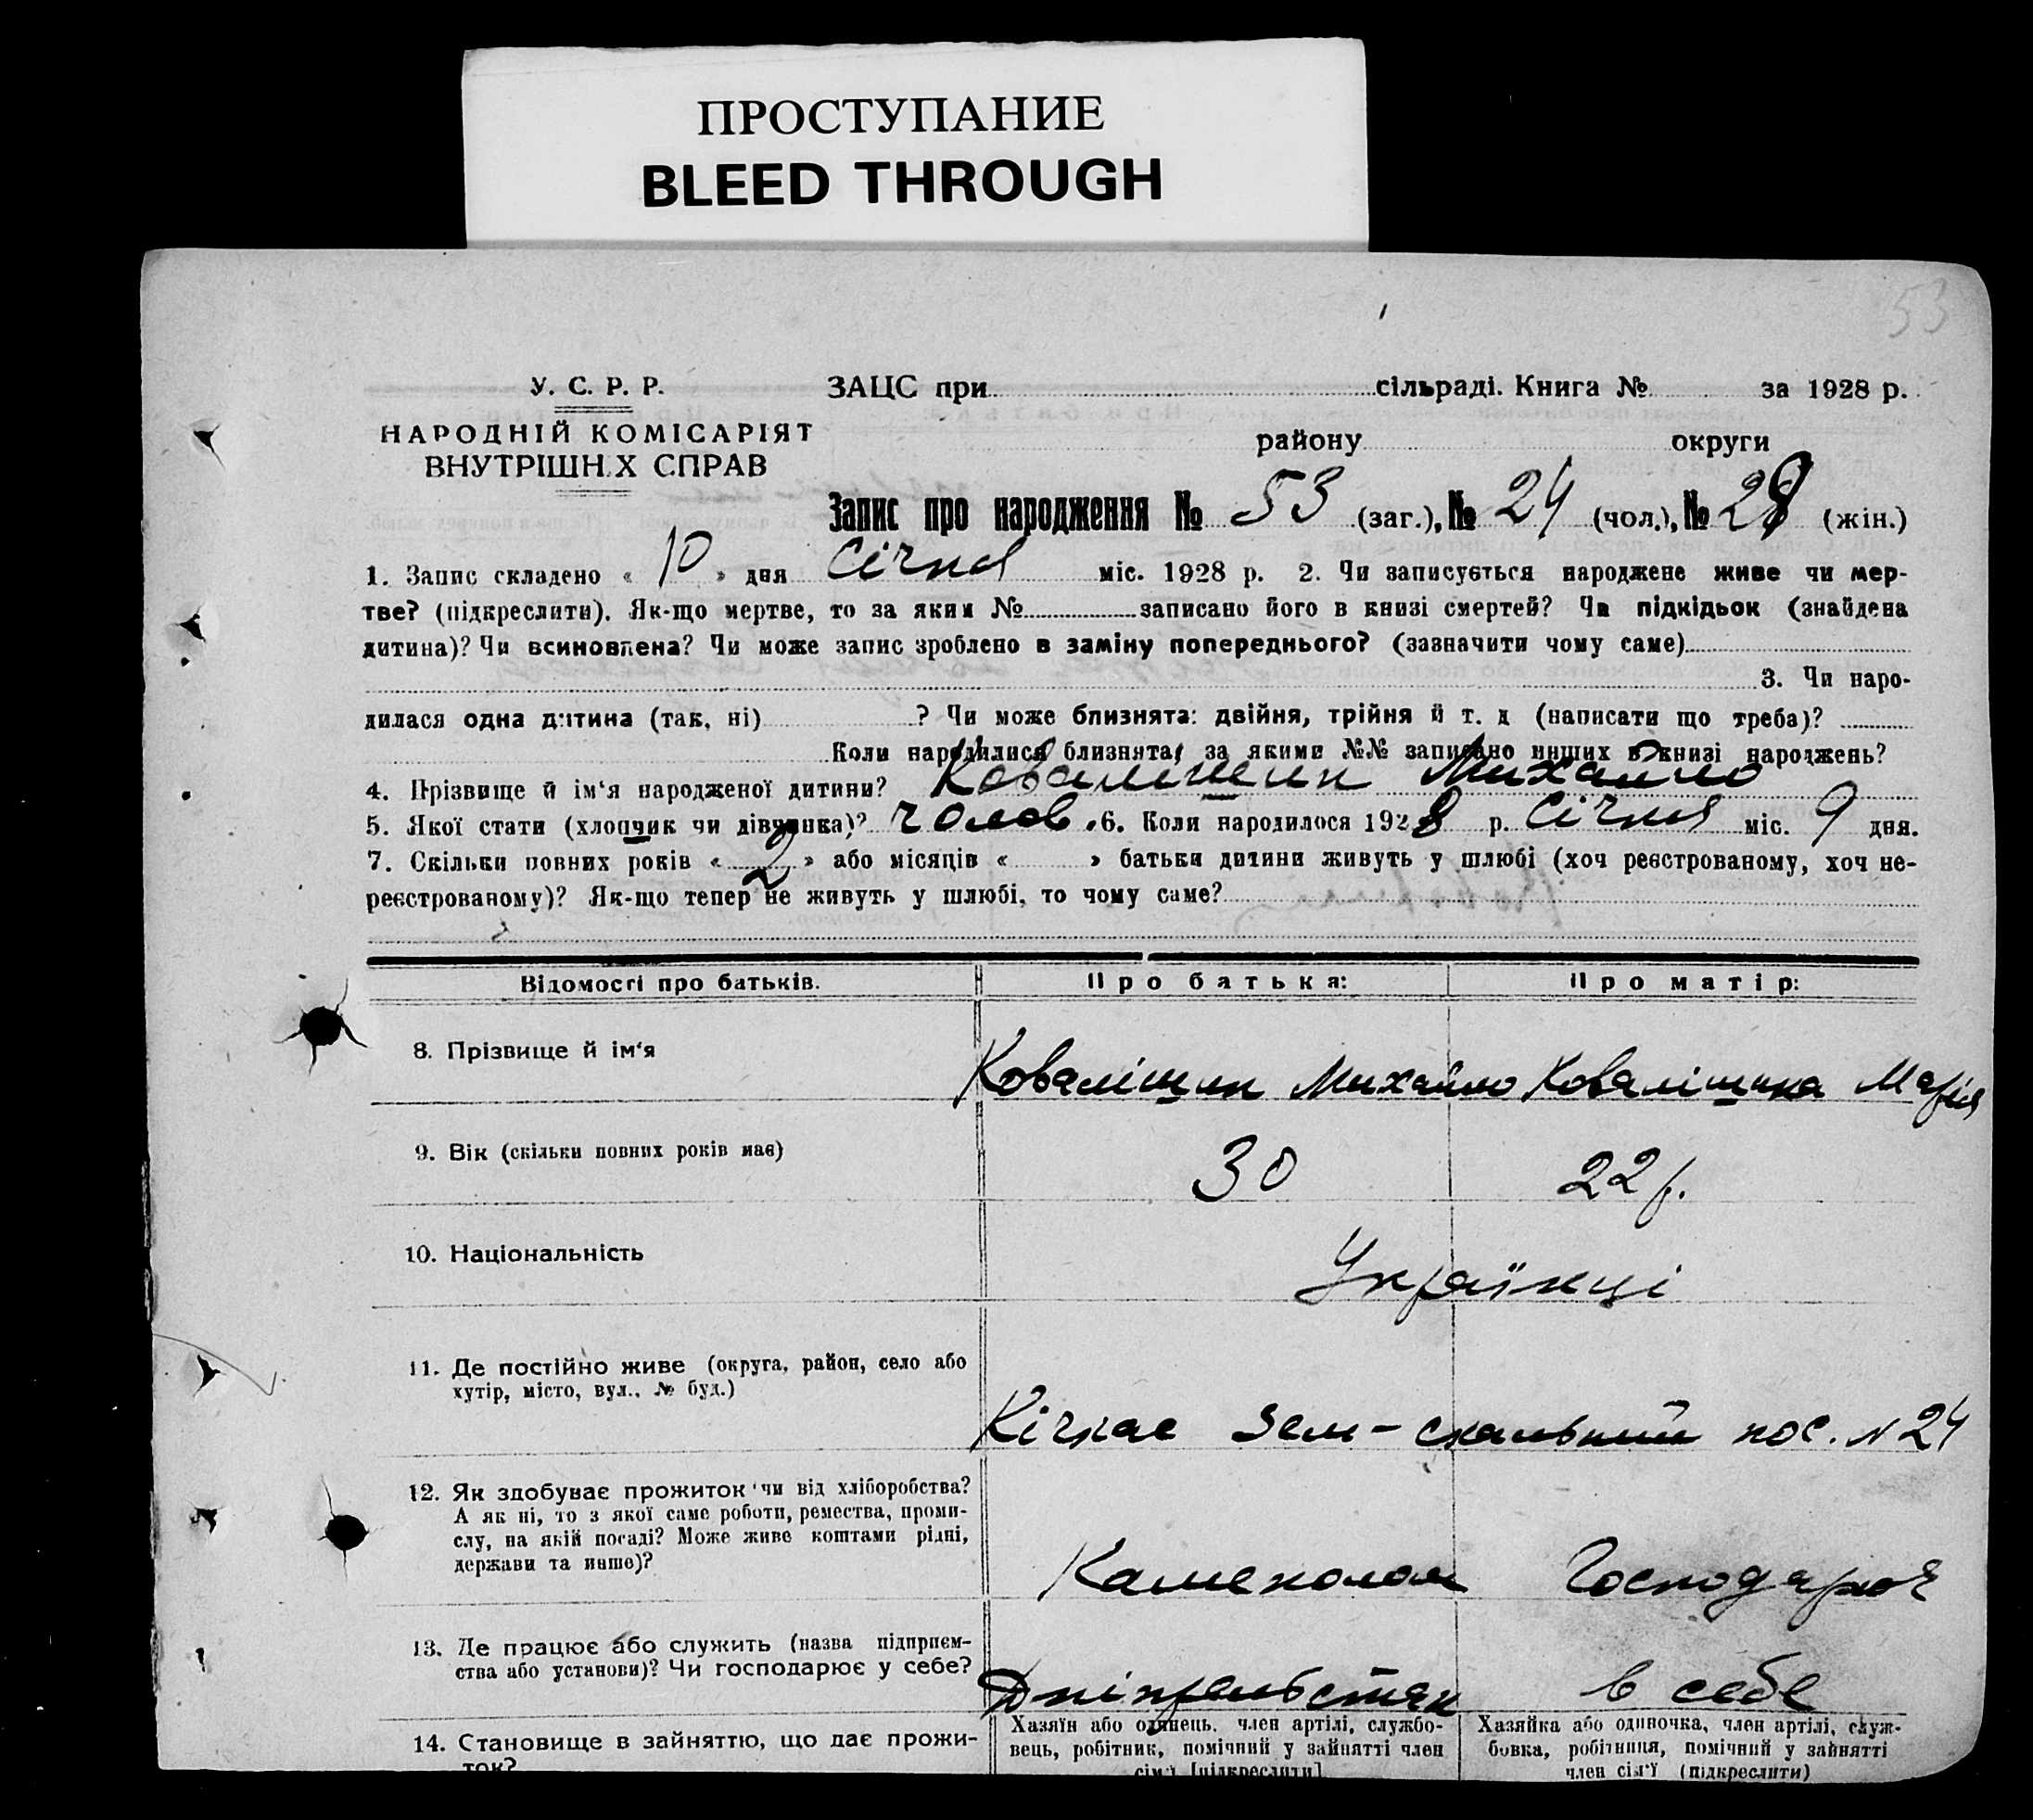 ПРОСТУПАНИЕ
BLEED THROUGH
53
У. С. Р. Р.
НАРОДНІЙ КОМІСАРІЯТ
ВНУТРІШН.Х СПРАВ
ЗАЦС при сільраді. Книга № за 1928 р.
району округи
Запис про народження № 53 (заг.), № 24 (чол.), № 28 (жін.)
1. Запис складено « 10 » дня Січня міс. 1928 р. 2. Чи записується народжене живе чи мер-
тве? (підкреслити). Як-що мертве, то за яким № записано його в книзі смертей? Чи підкідьок (знайдена
дитина)? Чи всиновлена? Чи може запис зроблено в заміну попереднього? (зазначити чому саме)
3. Чи наро-
дилася одна дитина (так, ні) ? Чи може близнята: двійня, трійня й т. д (написати що треба)?
Коли народилися близнята, за якими №№ записано инших в книзі народжень?
4. Прізвище й ім'я народженої дитини? Ковалішин Михайло
5. Якої стати (хлопчик чи дівчинка)? чолов. 6. Коли народилося 1928 р. Січня міс. 9 дня.
7. Скільки повних років « 2 » або місяців « » батьки дитини живуть у шлюбі (хоч реєстрованому, хоч не-
реєстрованому)? Як-що тепер не живуть у шлюбі, то чому саме?
Відомості про батьків. Про батька: Про матір:
8. Прізвище й ім'я Ковалішин Михайло Ковалішина Марія
9. Вік (скільки повних років має) 30 22 р.
10. Національність Українці
11. Де постійно живе (округа, район, село або
хутір, місто, вул., № буд.)
Кічкас Зем-скальний пос. N 24
12. Як здобуває прожиток чи від хліборобства?
А як ні, то з якої саме роботи, ремества, проми-
слу, на якій посаді? Може живе коштами рідні,
держави та инше)?
Каменолом Господарює
13. Де працює або служить (назва підприєм-
ства або установи)? Чи господарює у себе?
в себе
14. Становище в зайняттю, що дає прожи-
ток?
Хазяїн або одинець, член артілі, службо-
вець, робітник, помічний у зайнятті член
сім'ї [підкреслити]
Хазяйка або одиночка, член артілі, служ-
бовка, робітниця, помічний у зайнятті
член сім'ї (підкреслити)